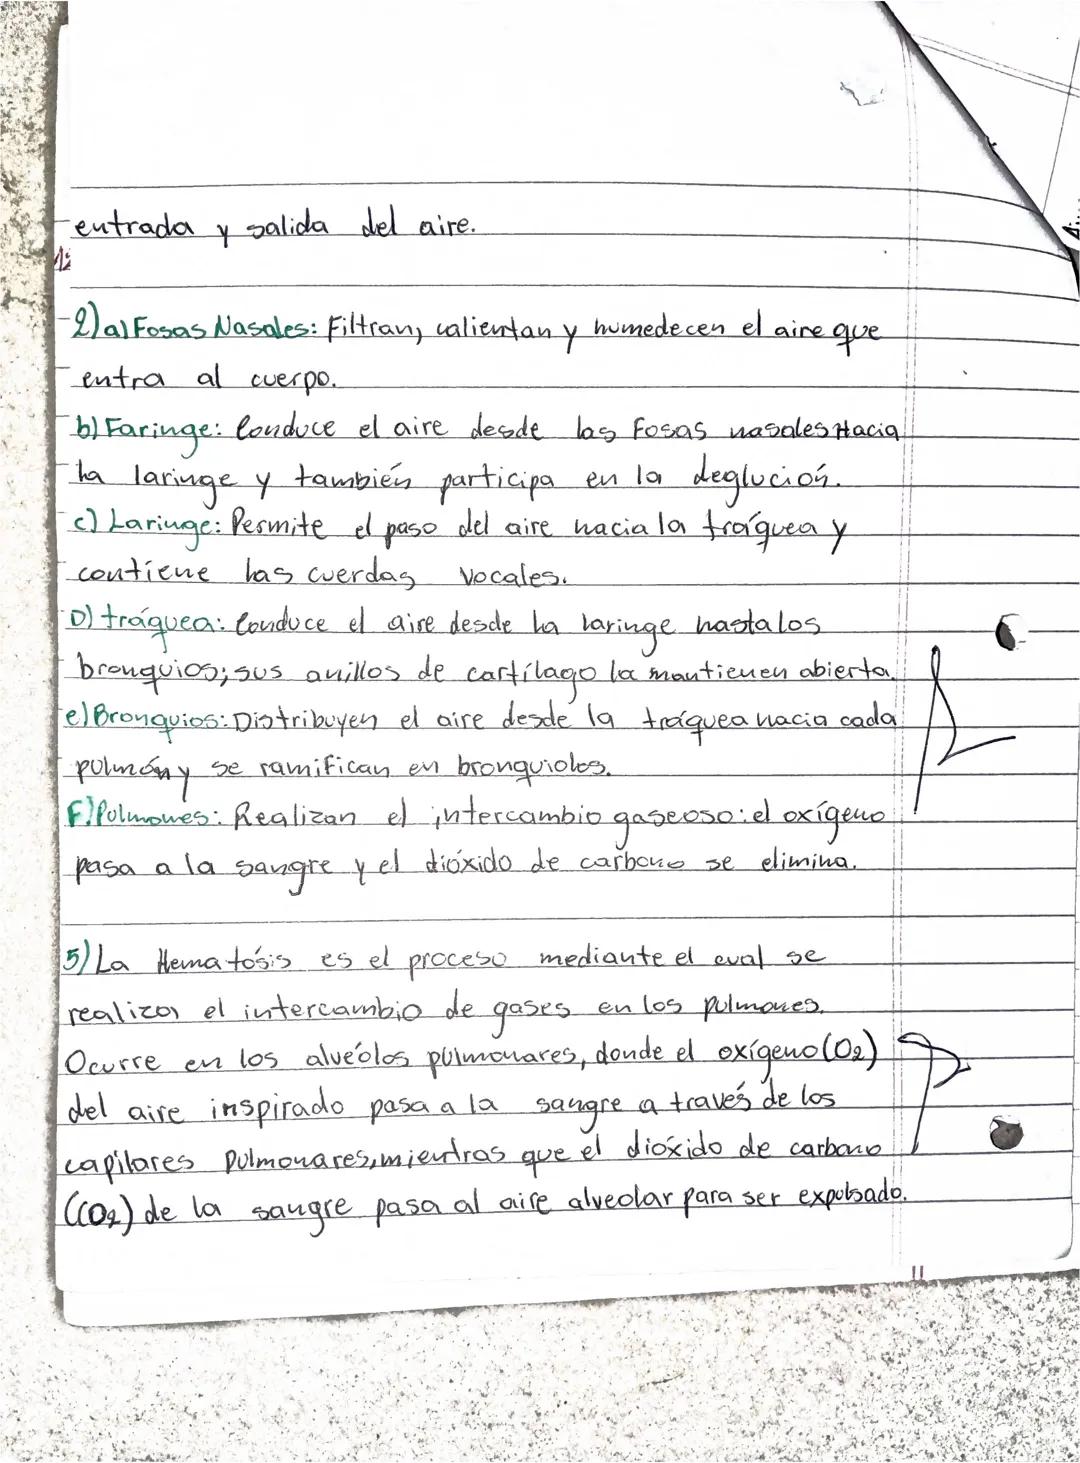 entrada y salida del aire.
2) a) Fosas Nasales: Filtran, calientan y humedecen el aire que
entra al cuerpo.
b) Faringe: Conduce el aire desde las Fosas nasales Hacia
la laringe y también participa en la deglución.
c) Laringe: Permite el paso del aire hacia la tráquea y
contiene las cuerdas vocales.
D) tráquea: Conduce el aire desde la laringe hasta los
bronquios; sus anillos de cartílago la mantienen abierta.
e) Bronquios: Distribuyen el aire desde la tráquea hacia cada
pulmón y se ramifican en bronquiolos.
F) Pulmones: Realizan el intercambio gaseoso: el oxígeno
pasa a la sangre y el dióxido de carbono se elimina.
5) La Hematósis es el proceso mediante el cual se
realiza el intercambio de gases en los pulmones.
Ocurre en los alveólos pulmonares, donde el oxígeno (O2)
del aire inspirado pasa a la sangre a través de los
capilares pulmonares, mientras que el dióxido de carbono
(CO2) de la sangre pasa al aire alveolar para ser expulsado.